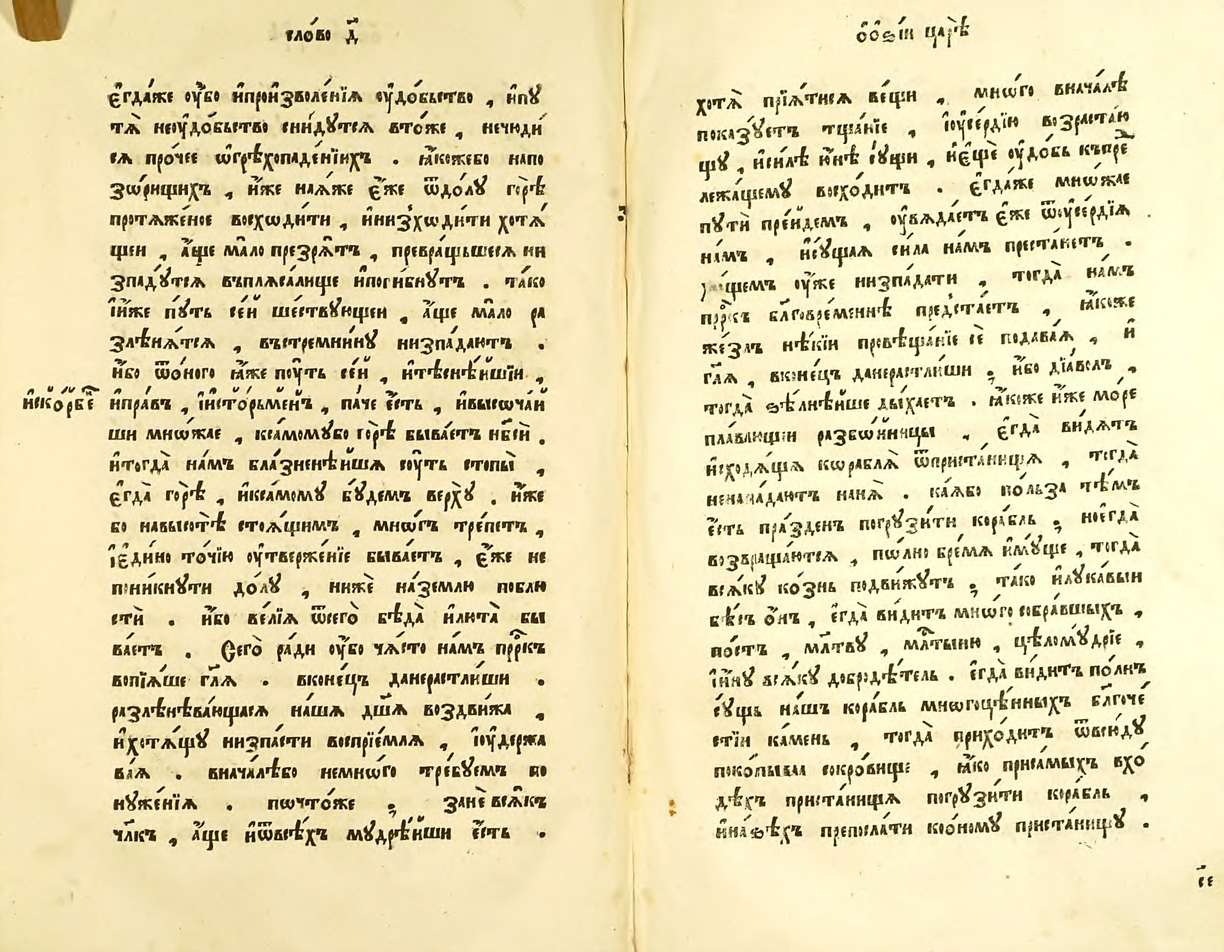 сло́во д҃
є҆гда́же ᲂу҆́бо и҆произволе́нїѧ ᲂу҆до́бьство , и҆пꙋ
тѧ̀ неᲂу҆до́бьство сни́дꙋтсѧ вто́же , нечюди́
сѧ про́чее ѡ҆грѣхопаде́нїихъ . ꙗ҆́коже бо напо
зѡ́рищихъ , и҆̀же на́ѧже є҆́же ѿдолꙋ̀ го́рѣ
протѧже́ное восхѡди́ти , и҆низхѡди́ти хотѧ́
щеи , а҆́ще ма́ло презрѧ́тъ , превра́щьшесѧ ни
зпадꙋ́тсѧ въплѧса́лище и҆поги́бнꙋтъ . та́ко
и҆и҆́же пꙋ́ть се́й ше́ствꙋющеи , а҆́ще ма́ло ра
злѣнѧ́тсѧ , въстремни́нꙋ низпа́даютъ .
и҆́бо ѿо́ного ꙗ҆́же пᲂу́ть се́й , и҆тѣснѣ́йшїи ,
и҆пра́въ , и҆исто́рьменъ , па́че є҆́сть , и҆высоча́й
ши мно́жае , ксамомꙋ́бо го́рѣ быва́етъ нб҃сѝ .
и҆тогда̀ на́мъ бла́зненѣйшѧ сᲂу́ть стопы̀ ,
є҆гда̀ го́рѣ , и҆ксамомꙋ̀ бꙋ́демъ ве́рхꙋ . и҆́же
бо навысотѣ̀ стоѧ́щимъ , мно́гъ тре́петъ ,
і҆є҆ди́но то́чїю ᲂу҆твержє́нїе быва́етъ , є҆́же не
пони́кнꙋти до́лꙋ , нижѐ на́землю поблю
стѝ . и҆́бо ве́лїѧ ѿсего̀ бѣда̀ и҆люта̀ бы
ва́етъ . Сего̀ ра́ди ᲂу҆́бо ча́сто на́мъ прⷪ҇ркъ
вопїѧ́ше гл҃ѧ . вконе́цъ данерастли́ши .
разлѣнѣва́ющаѧсѧ на́шѧ дш҃ѧ воздви́жа ,
и҆хотѧ́щꙋ низпа́сти воспрїе́млѧ , і҆ᲂу҆держа
ва́ѧ . внача́лѣбо немно́го тре́бꙋемъ по
нꙋже́нїѧ . почто́же ; занѐ всѧ́къ
чл҃къ , а҆́ще и҆ѿвсѣ́хъ мꙋдрѣ́йши є҆́сть .
и҆ско́рбе
ѻ҆ ѻ҆зі́и царѣ̀
хотѧ̀ прїѧ́тисѧ ве́щи , мно́го внача́лѣ
показꙋ́етъ тща́нїе , і҆ᲂу҆се́рдїю возраста́ю
щꙋ , и҆си́лѣ и҆́нѣ сꙋ́щи , и҆є҆щѐ ᲂу҆до́бь къпре
лежа́щемꙋ восхо́дитъ . є҆гда́же мно́жае
пꙋтѝ пре́йдемъ , ᲂу҆вѧда́етъ є҆́же ѿᲂу҆се́рдїѧ
на́мъ , и҆сꙋ́щаѧ си́ла на́мъ преста́нетъ .
щемъ ᲂу҆́же низпа́дати , тогда̀ на́мъ
прⷪ҇ркъ бл҃говреме́ннѣ предста́етъ , ꙗ҆́коже
же́злъ нѣ́кїи провѣща́нїе сѐ подава́ѧ , и҆
гл҃ѧ , вконе́цъ данерастли́ши ; и҆́бо дїа́волъ ,
тогда̀ ѕѣ́льнѣйше ды́хаетъ . ꙗ҆́коже и҆́же мо́ре
пла́вающеи разбо́йницы , є҆гда̀ ви́дѧтъ
и҆сходѧ́щѧ кѡраблѧ̀ ѿприста́нища , тогда̀
ненапа́даютъ нанѧ̀ . ка́ѧбо по́льза тѣ́мъ
є҆́сть пра́зденъ погрꙋзи́ти кора́бль ; ноє҆гда̀
возвраща́ютсѧ , пѡ́лно бре́мѧ и҆мꙋ́ще , тогда̀
всѧ́кꙋ ко́знь подви́жꙋтъ ; та́ко и҆лꙋка́выи
бѣ́съ ѻ҆́нъ , є҆гда̀ ви́дитъ мно́го собра́вшыхъ ,
по́стъ , мл҃твꙋ , мл҃тыню , цѣломꙋ́дрїе ,
і҆и҆́нꙋ всѧ́кꙋ добродѣ́тель . є҆гда̀ ви́дитъ по́лнъ
сꙋ́щь на́шъ кора́бль многоцѣ́нныхъ бл҃гоче́
стїи ка́мень , тогда̀ прихо́дитъ ѿвсю́дꙋ
поко́пываѧ сокро́вище , ꙗ҆́ко присамы́хъ вхо́
дѣхъ приста́нища погрꙋзи́ти кора́бль ,
и҆на́ѕѣхъ препосла́ти коо́номꙋ приста́нищꙋ .
се